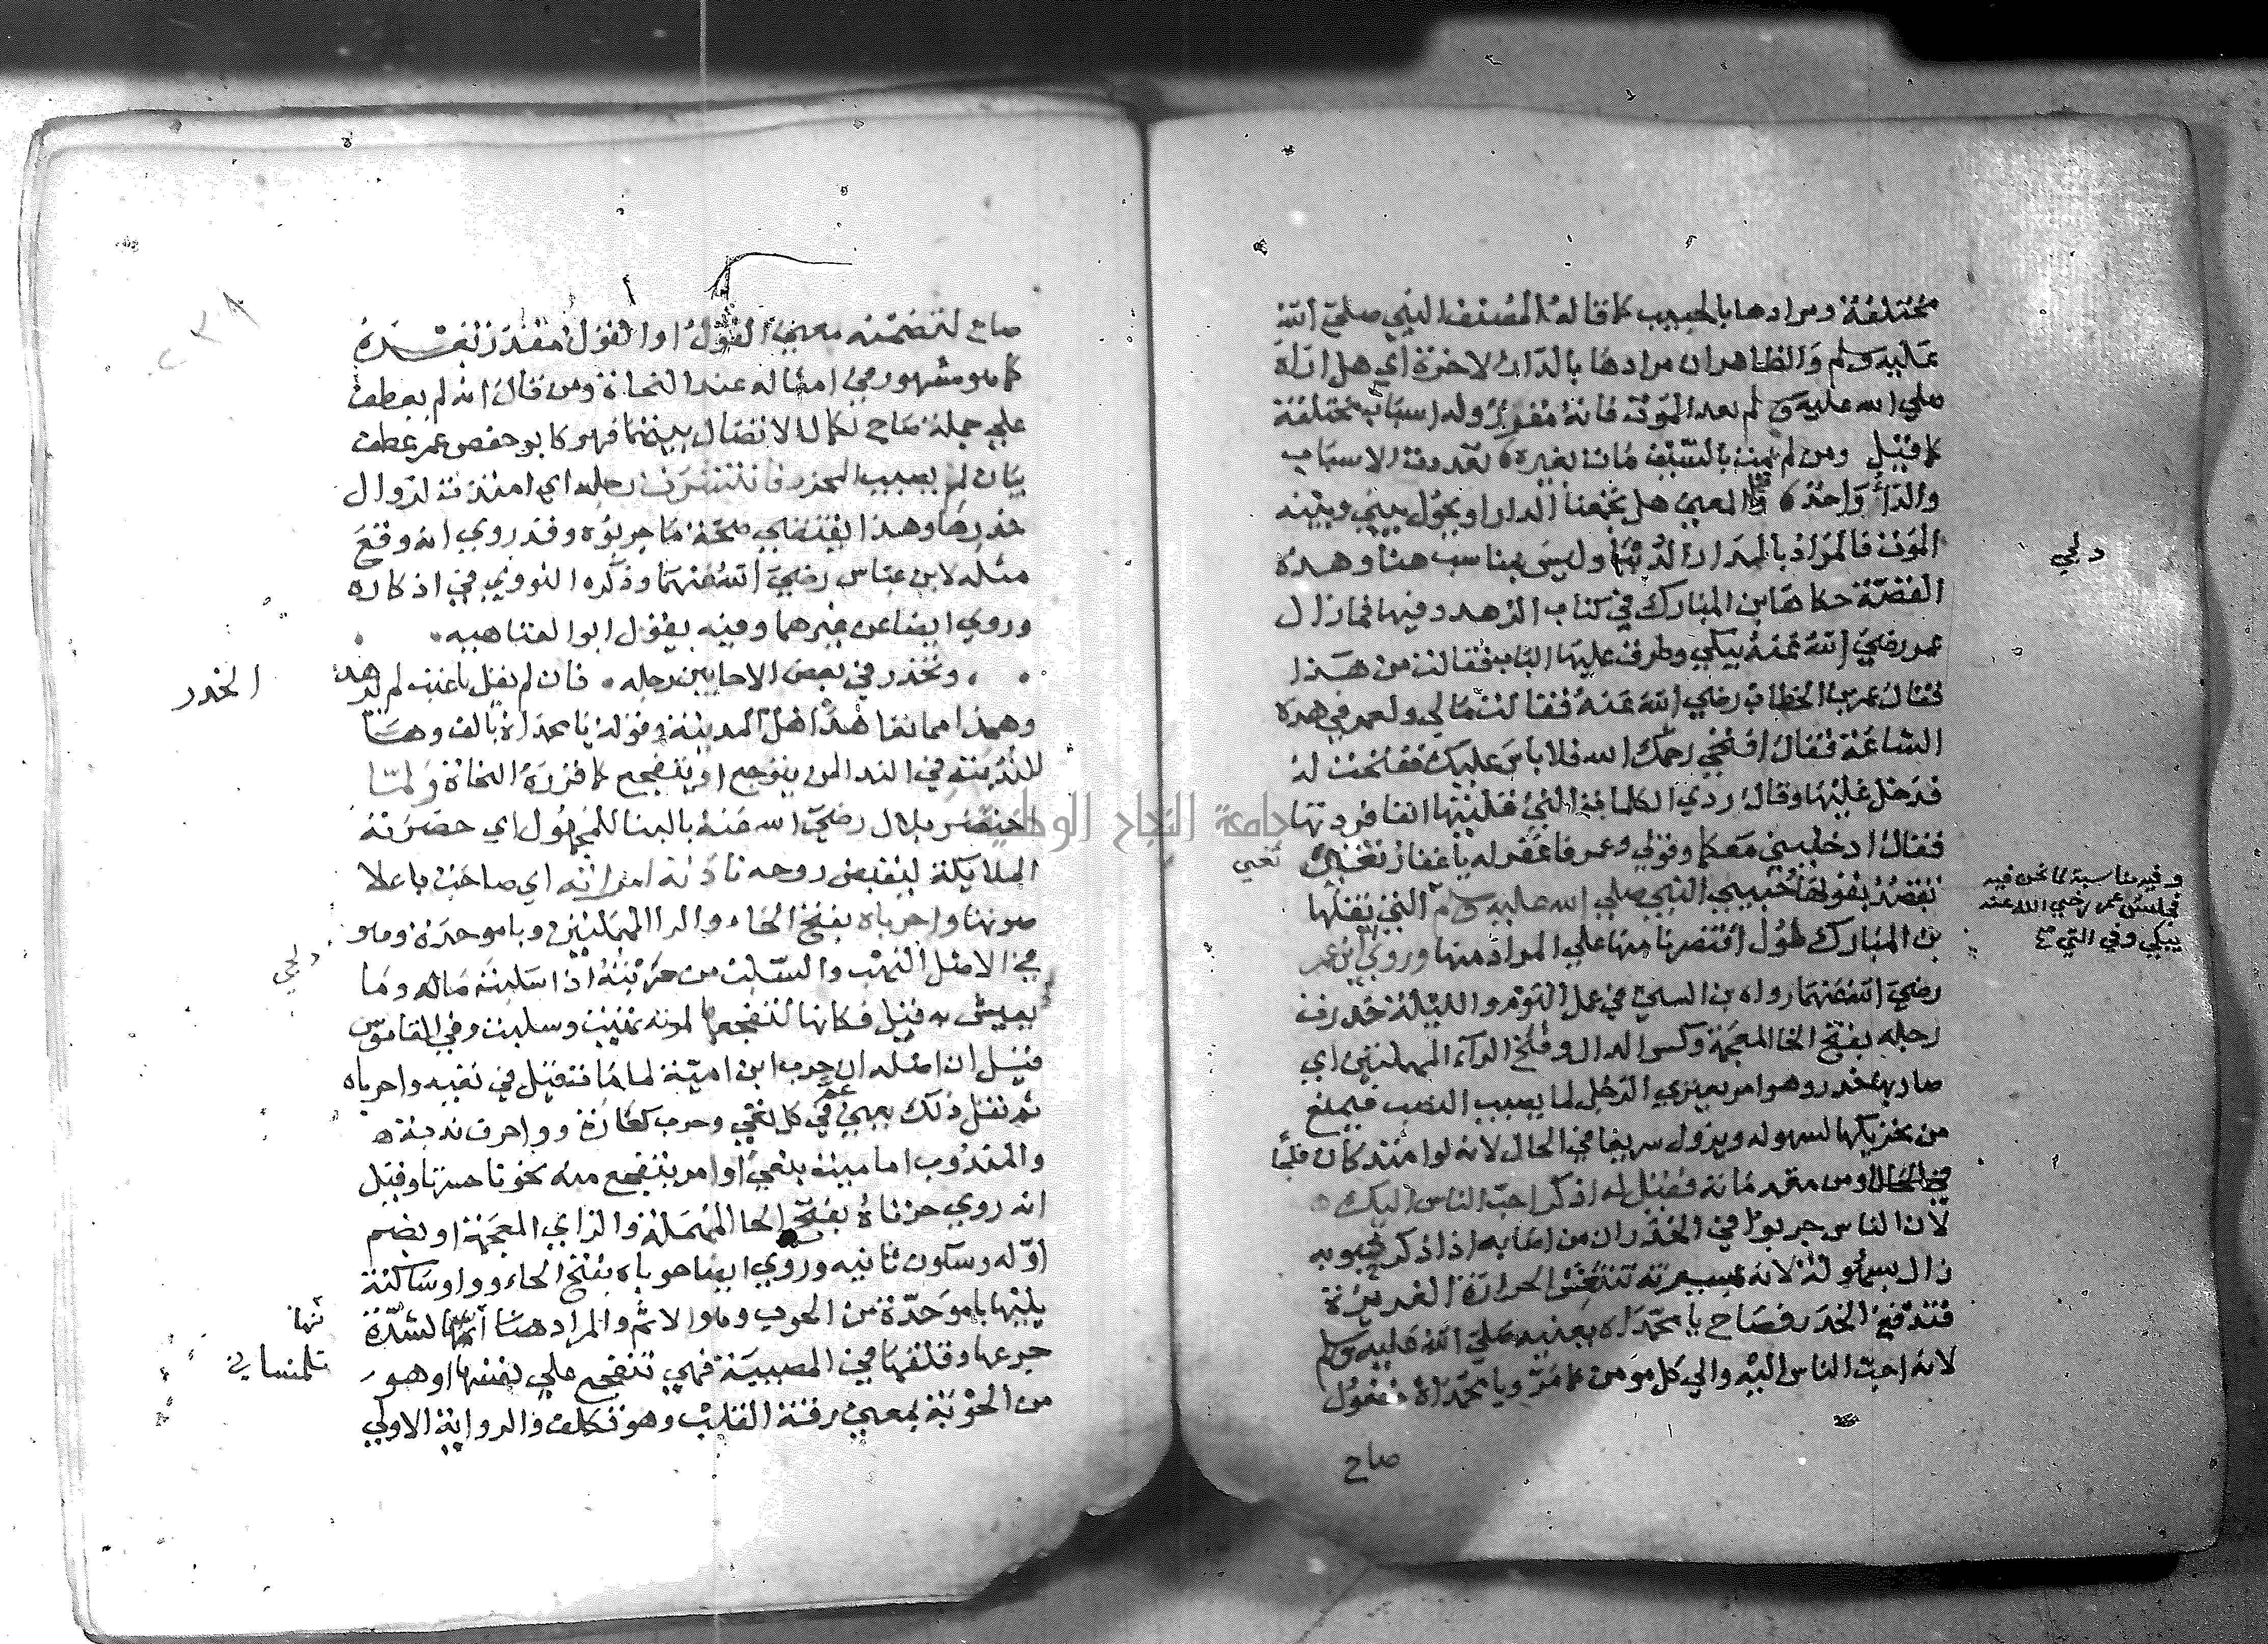 مختلفة ومرادها بالحبيب كما قاله المصنف النبي صلى الله
عليه وسلم والظاهر ان مرادها بالدار الاخرة اي هل اراه
صلى الله عليه وسلم بعد الموت فانه وله اسباب مختلفة
كما قيل ومن لم يمت بالسيف مات بغيره تعددت الاسباب
والدا واحد والمعنى هل تجمعنا الدار او يحول بيني وبينه
الموت فالمراد بالدار الدنيا وليس بمناسب هنا وهذه
القصة حكاها بن المبارك في كتاب الزهد وفيها فما زال
عمر رضي الله عنه يبكي وطرق عليها الباب فقالت من هذا
فقال عمر بن الخطاب رضي الله عنه فقالت مالي ولعمر في هذه
الساعة فقال افتحي رحمك الله فلا باس عليك ففتحت له
فدخل عليها وقال ردي الكلمات التي قلتيها انفا فردتها
فقال ادخليني معكما وقولي وعمر فاغفر له يا غفار
بقولها حبيبي النبي صلى الله عليه وسلم التي نقلها
بن المبارك طول اقتصرنا منها على المراد منها وروي ان بن عمر
رضي الله عنهما رواه بن السني في عمل اليوم والليلة خدرت
رجله بفتح الخا المعجمة وكسر الدال وفتح الرآء المهملتين اي
صار بها خدر وهو امر يعتري الرجل لما يصيب العصب فيمنع
من تحريكها بسهوله ويزول سريعا في الحال لانه لو امتد كان فلجا
في الحال ومن مقدماته فقيل له اذكر احب الناس اليك
لان الناس جربوا في الخدر ان من اصابه اذا ذكر محبوبه
زال بسهولة لانه بمسرته تنتعش الحرارة الغريزية
فتدفع الخدر فصاح يا محمداه يعنيه صلى الله عليه وسلم
لانه احب الناس اليه والى كل مومن كما مر ويا محمداه مفعول
صاح
دلجي
تعني
وفيه مناسبة لما نحن فيه
فجلس عمر رضي الله عنه
يبكي وفي التي
صاح لتضمنه معنى القول او القول مقدر بعده
كما هو مشهور في امثاله عند النحاة ومن قال انه لم يعطف
على جملة صاح لكمال الاتصال بينهما فهو كابو حفص عمر عطف
بيان لم يصب المحز فانتشرت رجله اي امتدت لزوال
خدرها وهذا يقتضي صحة ما جربوه وقد روي انه وقع
مثله لابن عباس رضي الله عنهما وذكره النووي في اذكاره
وروي ايضا عن غيرهما وفيه يقول ابو العتاهيه
وتخدر في بعض الاحايين رجله فان لم يقل يا عتب لم يذهب
الخدر
وهذا مما اهل المدينة وقوله يا محمداه بالف وها
للندبة في الندا لمن يتوجع او يتفجع كما قرره النحاة ولما
احتضر بلال رضي الله عنه بالبنا للمجهول اي حضرته
الملايكة لقبض روحه نادته امراته اي صاحت باعلا
صوتها واحرباه بفتح الحاء والرا المهملتين وبا موحدة وهو
في الاصل النهب والسلب من حربته اذا سلبته ماله وما
يعيش به قيل فكانها لتفجعها لموته نهبت وسلبت وفي القاموس
قيل ان اصله ان حرب ابن امية لما مات قيل في نعيه واحرباه
ثم نقل ذلك
والمندوب اما مبينه او امر يتفجع منه نحو نا حسرتا وقيل
انه روي حزناه بفتح الحا المهملة والزاي المعجمة او بضم
اوله وسكون ثانيه وروي ايضا حوباه بفتح الحاء وواو ساكنة
يليها با موحدة من الحوب وهو الاثم والمراد هنا لشدة
جزعها وقلقها في المصيبة فهي تتفجع على نفسها او هو
من الحوبة بمعنى رقة القلب وهو تكلف والرواية الاولى
دلجي
تلمساني
جامعة النجاح الوطنية